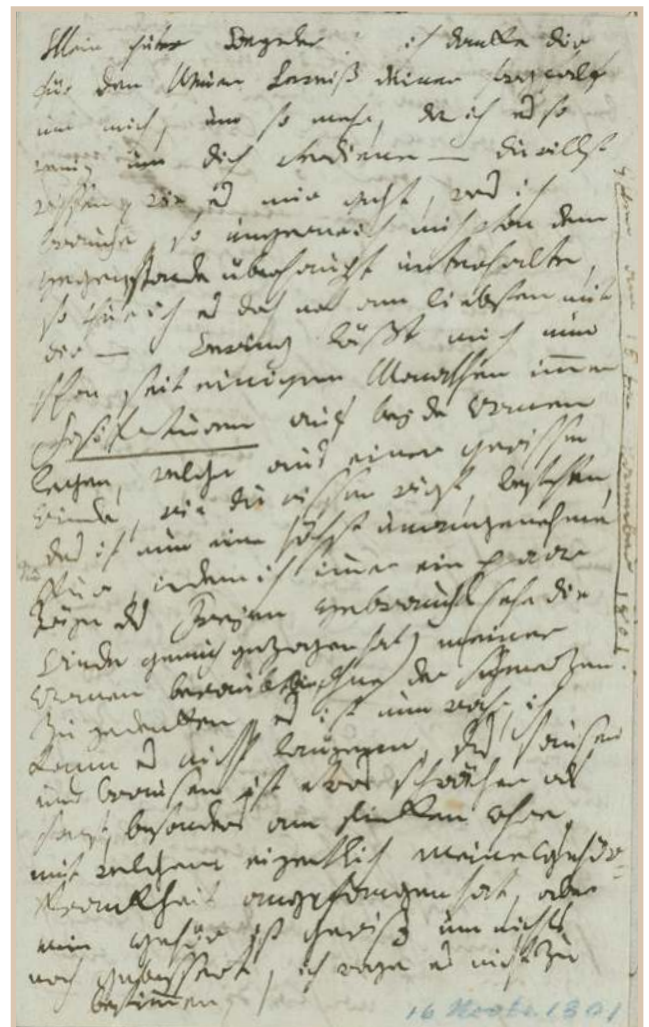 Mein guter Wegeler! ich danke dir
für den Neuen Beweiß deiner sorgfalt
um mich, um so mehr, da ich es so
wenig um dich verdiene — du willst
wissen, wie es mir geht, was ich
brauche, so ungerne ich mich von dem
gegenstande überhaupt unterhalte,
so thue ich es doch noch am liebsten mit
dir — Wering läßt mich nun
schon seit einigen Monathen immer
Vesicaturen auf beyde Armen
legen, welche aus einer gewissen
Rinde, wie du wissen wirst, bestehen,
das ist nun eine höchst unangenehme
Kur, indem ich immer ein paar
Täge des freyen gebrauchs (ehe die
Rinde genug gezogen hat) meiner
Armen beraubt bin, ohne der schmerzen
zu gedenken, es ist nun wahr, ich
kann es nicht läugnen, das sausen
und brausen ist etwas schwächer als
sonst, besonders am linken Ohre,
mit welchem eigentlich meine Gehör-
Krankheit angefangen hat, aber
mein gehör ist gewiß um nichts
noch gebessert, ich wage es nicht zu
bestimmen,
16 1801